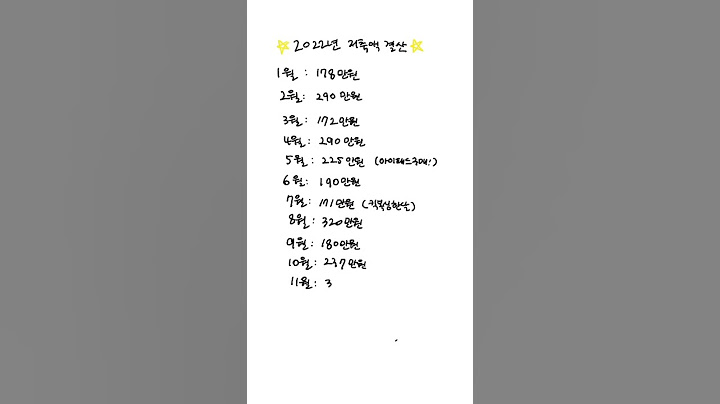 2022년 저축액 결산
1월 : 178만원
2월 : 290만원
3월 : 172만원
4월 : 290만원
5월 : 225만원 (아이패드구매!)
6월 : 190만원
7월 : 171만원 (킥복싱한달)
8월 : 320만원
9월 : 180만원
10월 : 237만원
11월 : 3